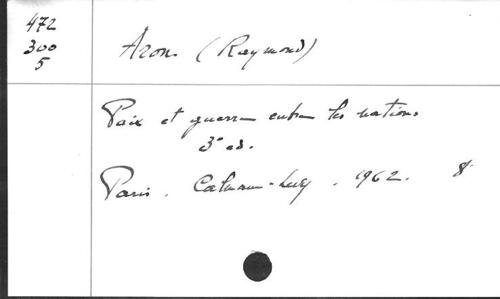 472
300
5
Aron (Raymond)
Paix et guerre entre les nations
3e ed.
Paris. Calmann-Levy. 1962. 8°